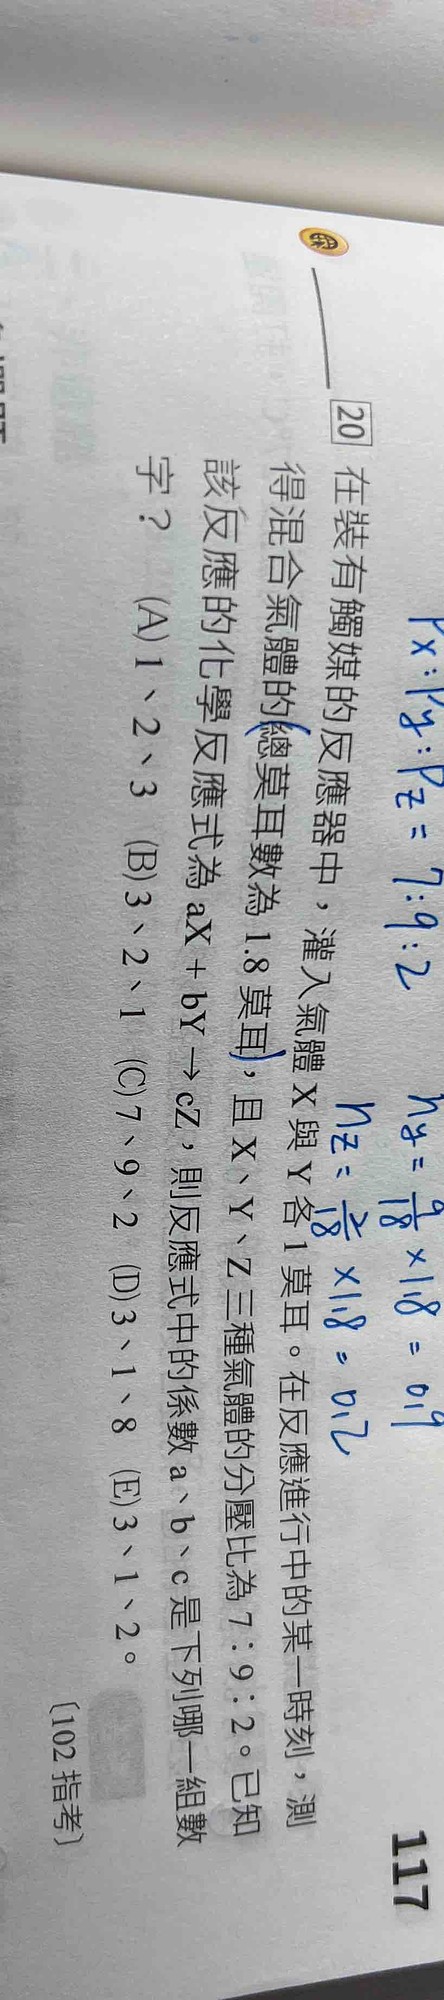 117
Px:Py:Pz = 7:9:2
ny = 9/18 × 1.8 = 0.9
nz = 2/18 × 1.8 = 0.2
20 在裝有觸媒的反應器中，灌入氣體 X 與 Y 各 1 莫耳。在反應進行中的某一時刻，測
得混合氣體的(總莫耳數為 1.8 莫耳)，且 X、Y、Z 三種氣體的分壓比為 7：9：2。已知
該反應的化學反應式為 aX + bY → cZ，則反應式中的係數 a、b、c 是下列哪一組數
字？ (A) 1、2、3 (B) 3、2、1 (C) 7、9、2 (D) 3、1、8 (E) 3、1、2。
〔102 指考〕